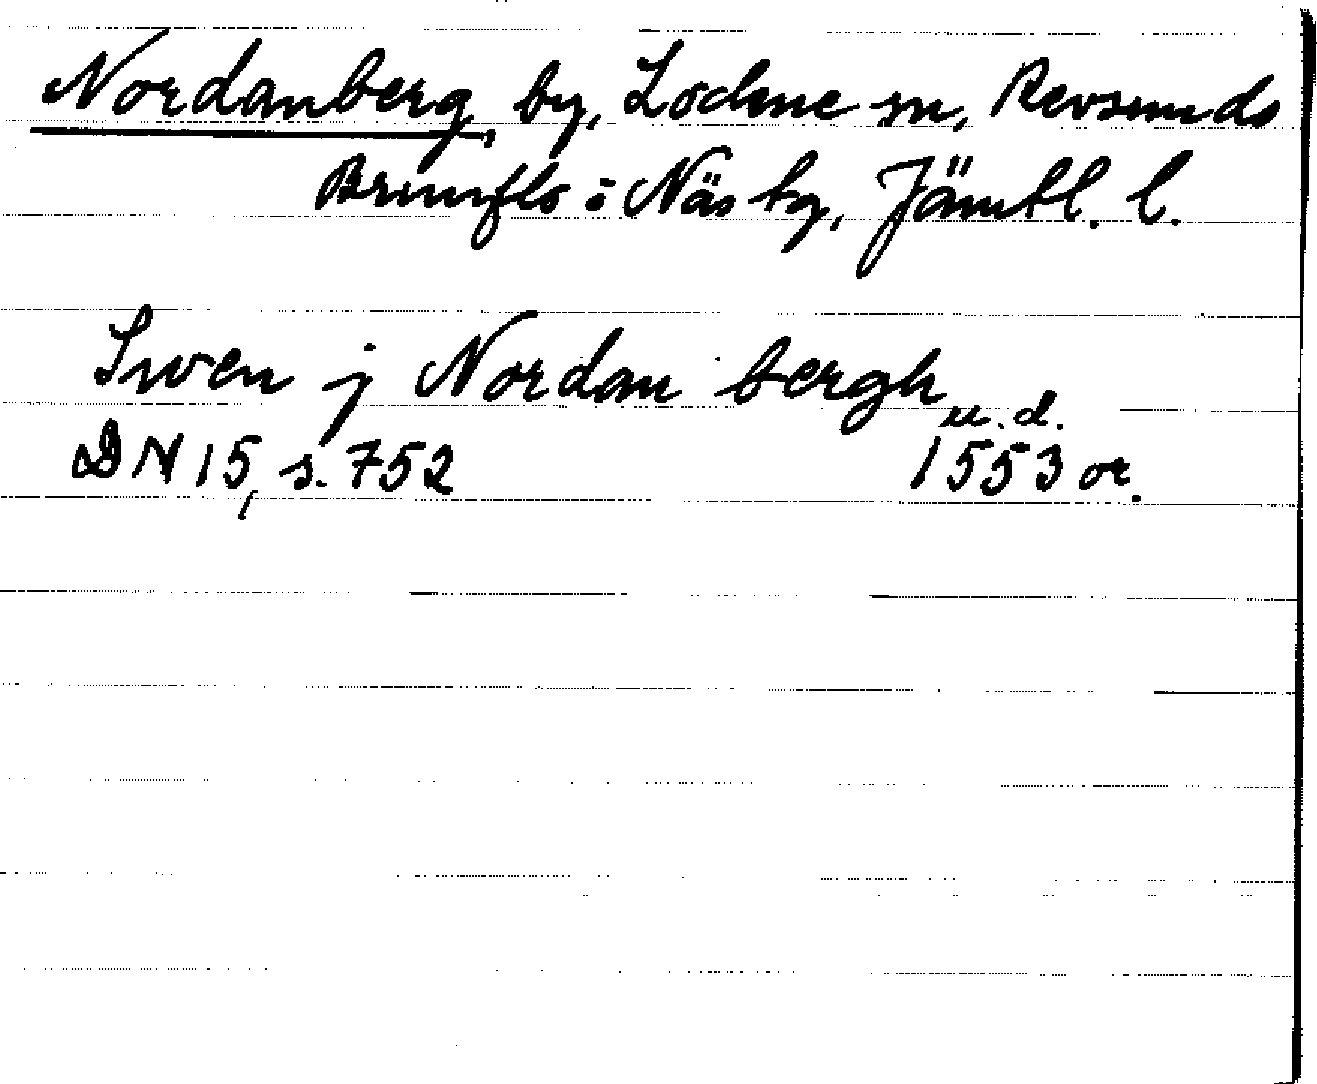 Nordanberg, by, Lockne sn, Revsunds
Brunflo o Näs tg, Jämtl. l.
Swen j Nordan bergh
u. d.
DN 15, s. 752 1553 or.